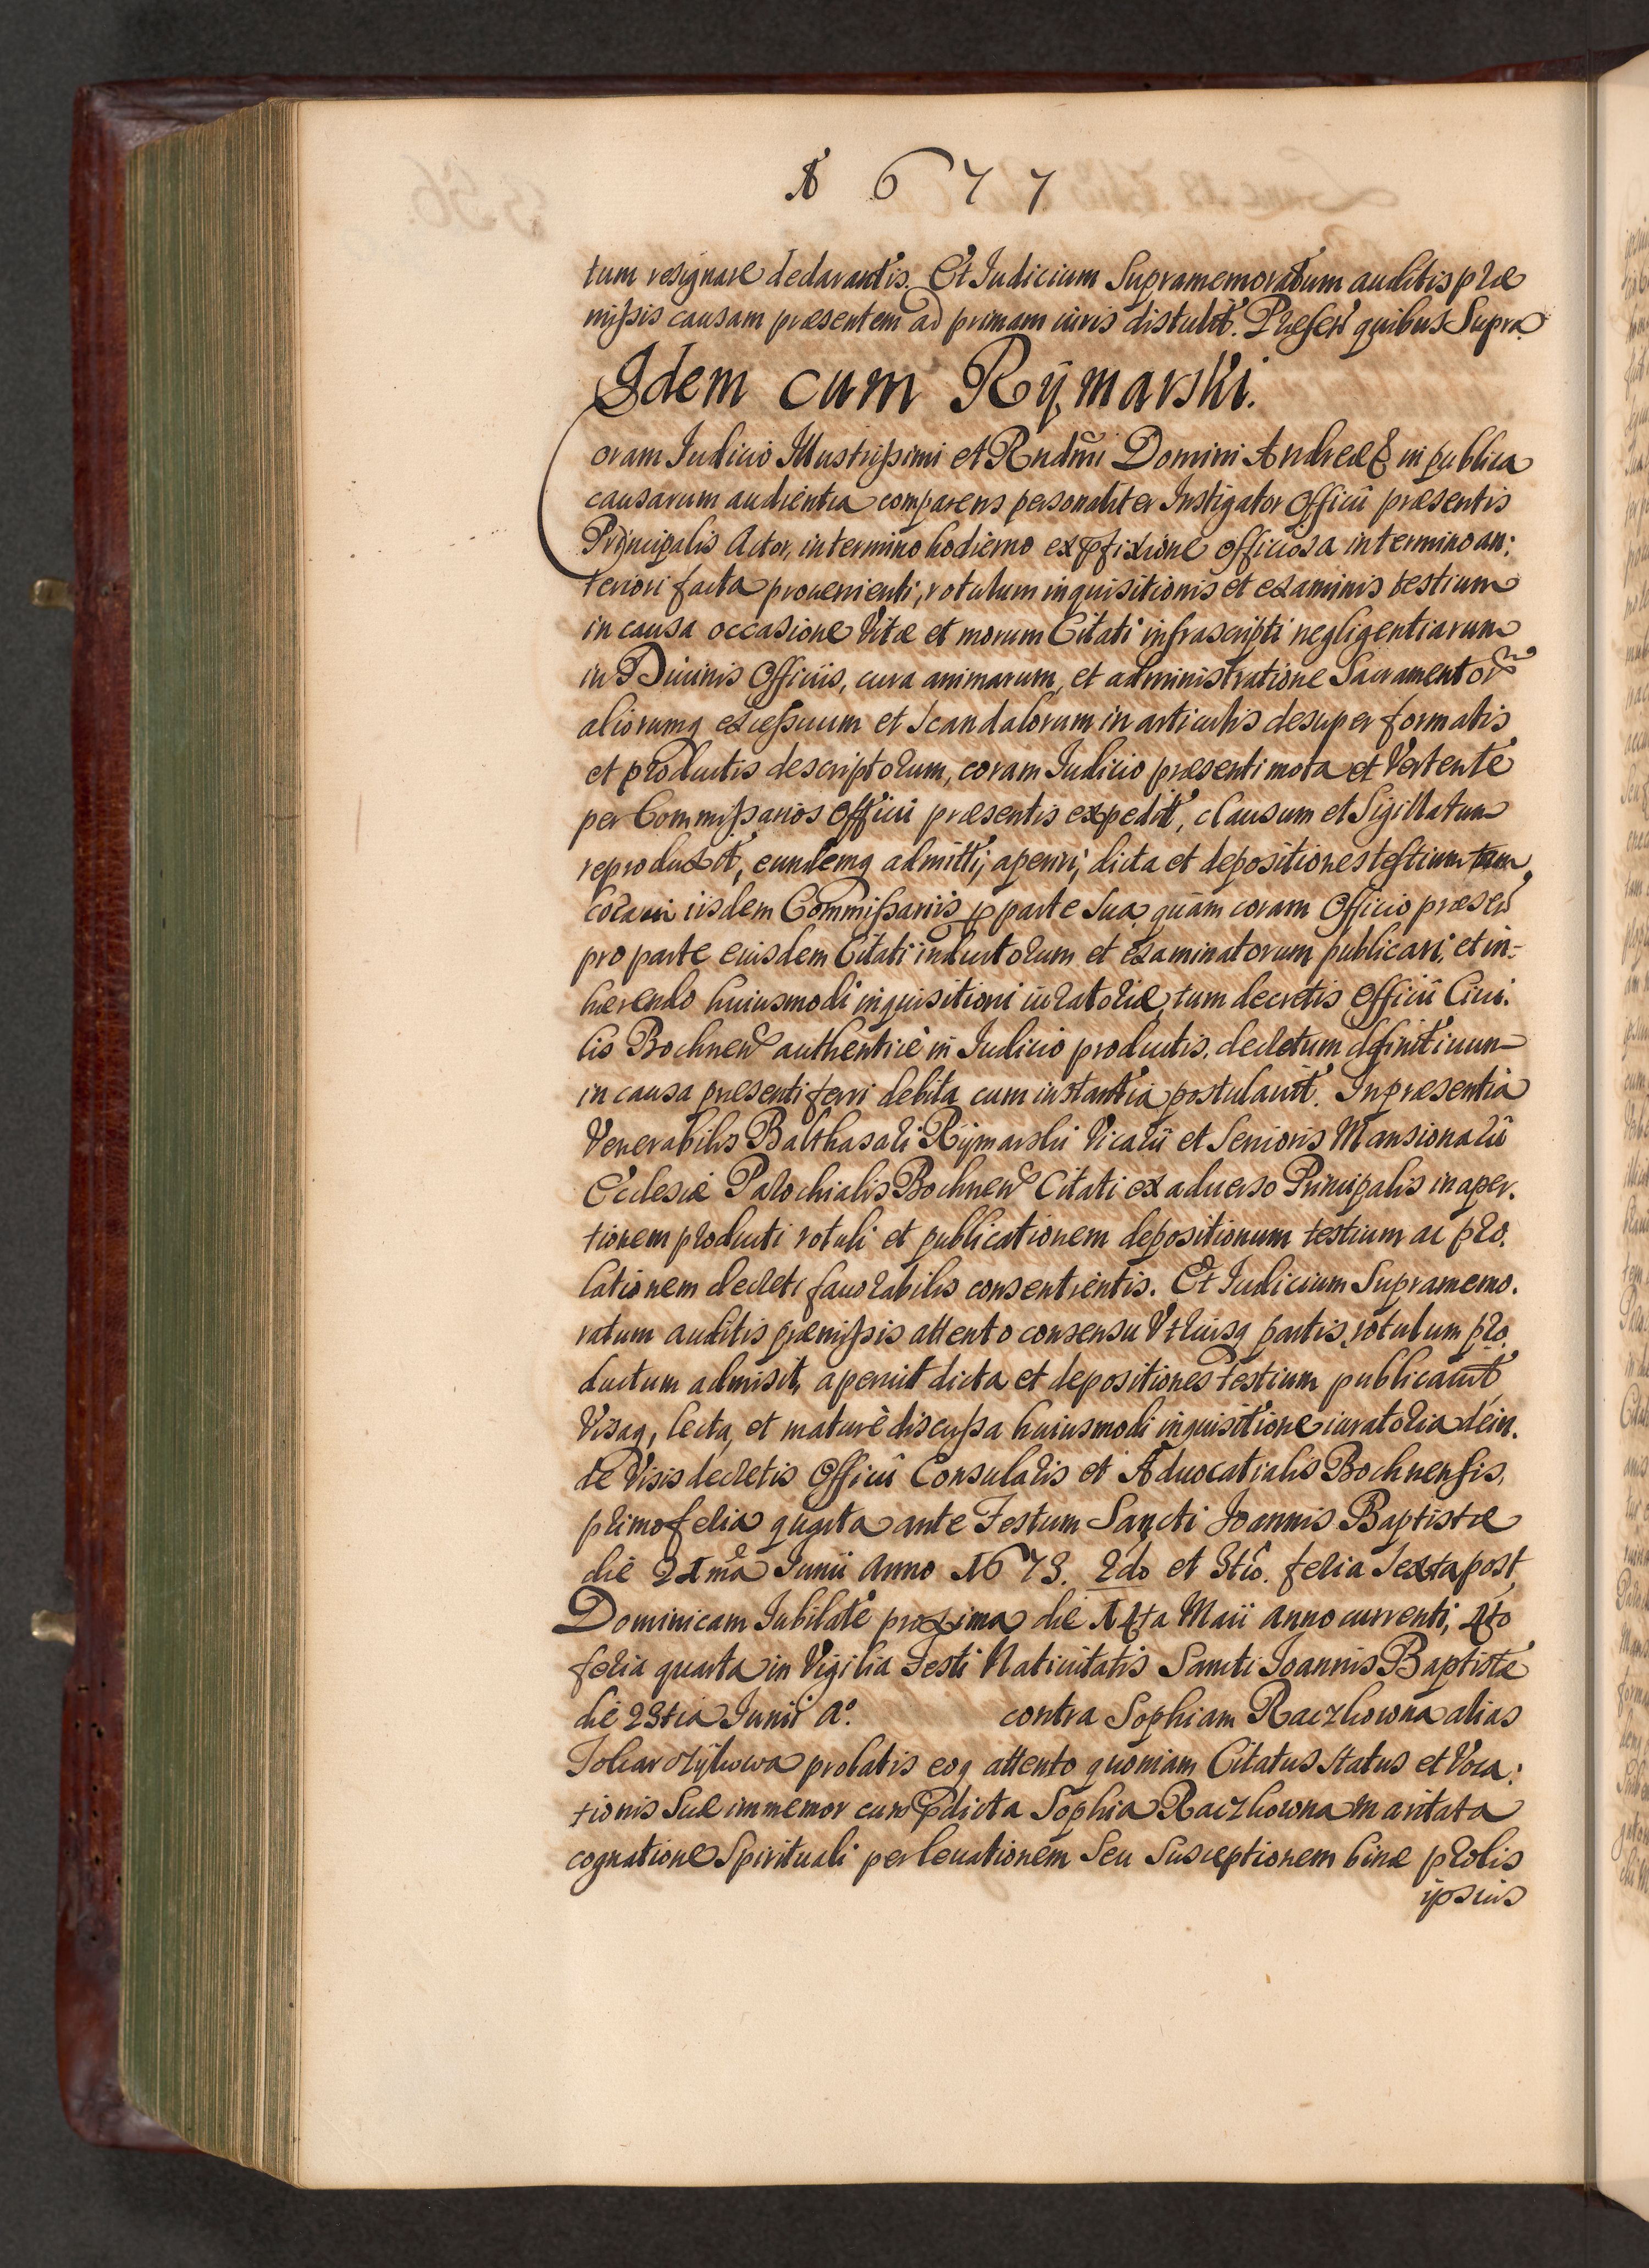 A 677
tum resignare declarantis. Et Iudicium Supramemoratum auditis præ
mißis causam præsentem ad primam iuris distulit. Præsen quibus Supra.
Idem cum Rÿmarski.
Coram Iudicio Illustrißimi et Rndmi Domini Andreæ & in publica
causarum audientia comparens personaliter Instigator Officii præsentis
Principalis Actor, in termino hodierno ex pfixione officiosa in termino an:
teriori facta prouenienti, rotulum inquisitionis et examinis testium
in causa occasione Vitæ et morum Citati infrascripti negligentiarum
in Diuinis Officiis, cura animarum, et administratione Sacramentor
aliorumq exceßuum et scandalorum in articulis desuper formatis
et productis descriptorum, coram Iudicio præsenti mota et Vertente
per Commißarios Officii præsentis expedit, clausum et Sigillatum
reproduxit, eundemq admitti, aperiri, dicta et depositiones testium tam
coram iisdem Commißariis p parte sua quàm coram Officio præsen
pro parte eiusdem Citati inductorum et examinatorum publicari, et in-
hærendo huiusmodi inquisitioni iuratoriæ, tum decretis Officii Ciui.
lis Bochnen authenticè in Iudicio productis, decretum dfinitiuum
in causa præsenti ferri debita cum instantia postulauit. In præsentia
Venerabilis Balthasari Rÿmarski Vicarii et Senioris Mansionarii
Ecclesiæ Parochialis Bochnen Citati ex aduerso Principalis in aper.
tionem producti rotuli et publicationem depositionum testium ac pro.
lationem decreti fauorabilis consentientis. Et Iudicium Supramemo.
ratum auditis præmißis attento consensu Vtriusq partis, rotulum pro
ductum admisit, aperuit dicta et depositiones testium publicauit,
Visaq, lecta, et maturè discußa huiusmodi inquisitione iuratoria dein.
de Visis decretis Officii Consularis et Aduocatialis Bochnensis,
primo feria quarta ante Festum Sancti Joannis Baptistæ
die 21ma Iunii Anno 1673. 2do et 3tio. feria sexta post
Dominicam Iubilate proxima die 14ta Maii anno currenti, 4to
feria quarta in Vigilia Festi Natiuitatis Sancti Joannis Baptistæ
die 23tia Iunii Ao. contra Sophiam Raczkowna alias
Tokarczÿkowa probatis eoq attento quoniam Citatus status et Voca:
tionis suæ immemor cum pdicta Sophia Raczkowna maritata
cognatione Spirituali per leuationem seu susceptionem binæ prolis
ipsius